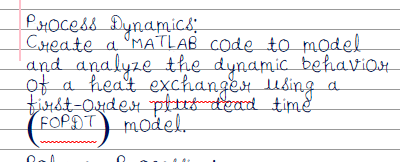 Process Dynamics:
Create a MATLAB code to model
and analyze the dynamic behavior
of a heat exchanger using a
first-order plus dead time
(FOPDT) model.